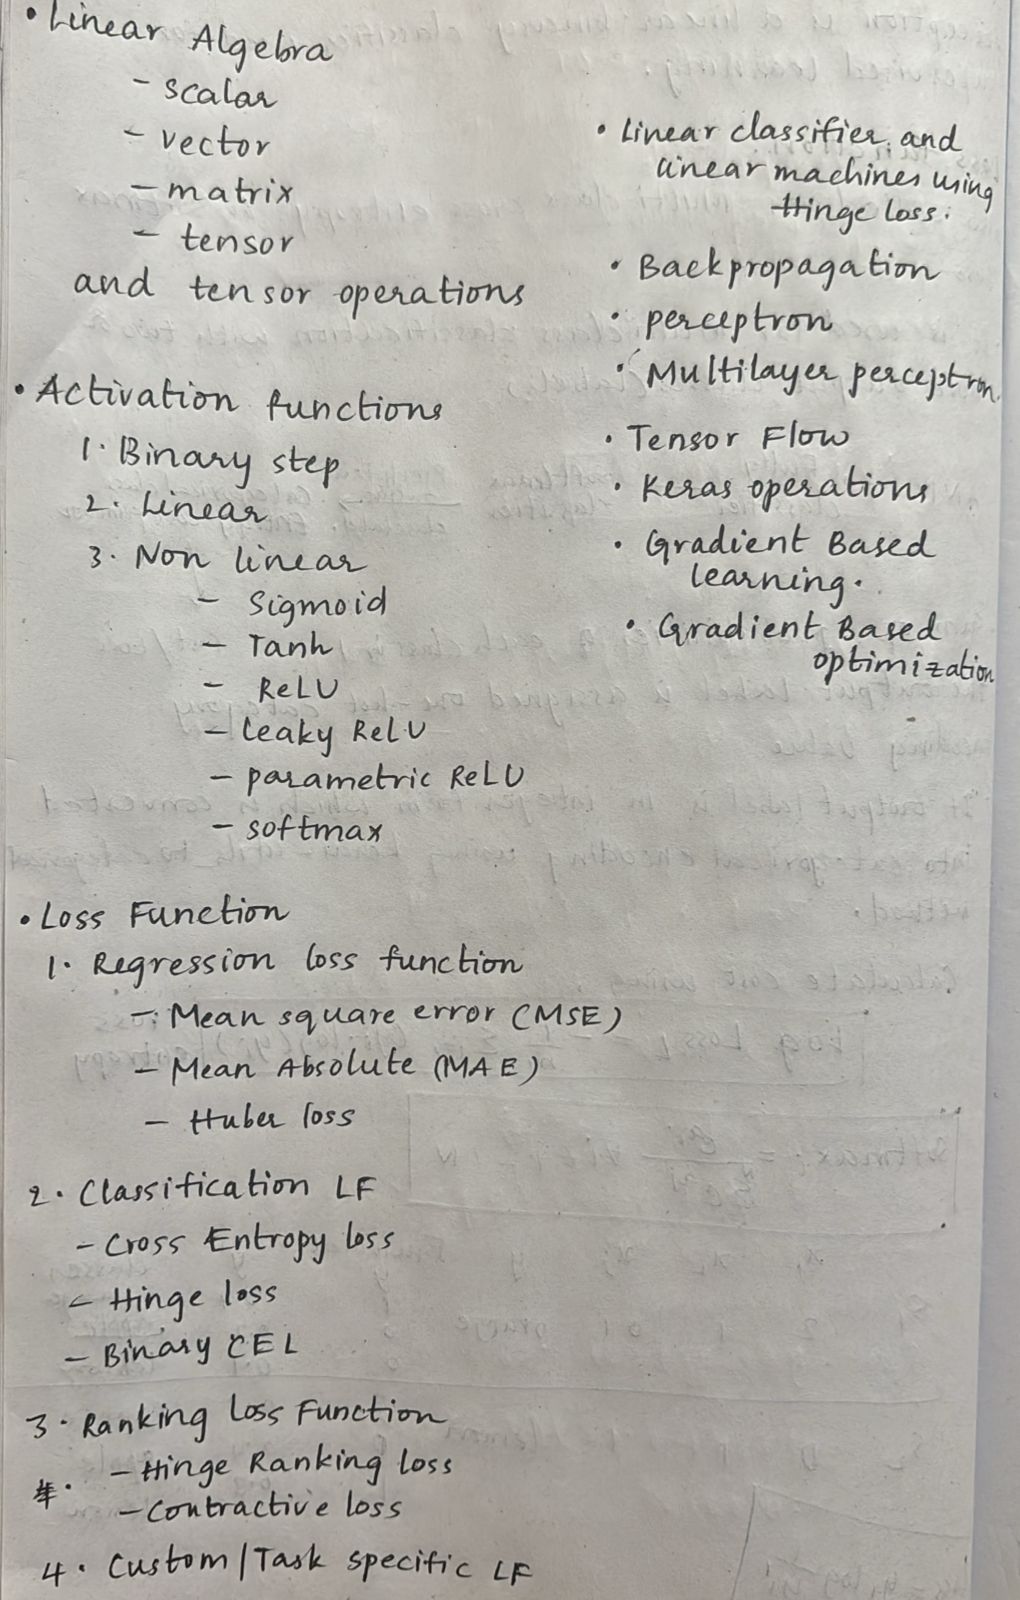 • Linear Algebra
- scalar
- vector
- matrix
- tensor
and tensor operations
• Activation functions
1. Binary step
2. Linear
3. Non linear
- Sigmoid
- Tanh
- ReLU
- Leaky ReLU
- parametric ReLU
- softmax
• Loss Function
1. Regression loss function
- Mean square error (MSE)
- Mean Absolute (MAE)
- Huber loss
2. Classification LF
- Cross Entropy loss
- Hinge loss
- Binary CEL
3. Ranking Loss Function
- Hinge Ranking loss
- Contractive loss
4. Custom/Task specific LF
• Linear classifier and
linear machines using
Hinge loss.
• Backpropagation
• perceptron
• Multilayer perceptron
• Tensor Flow
• Keras operations
• Gradient Based
learning.
• Gradient Based
optimization